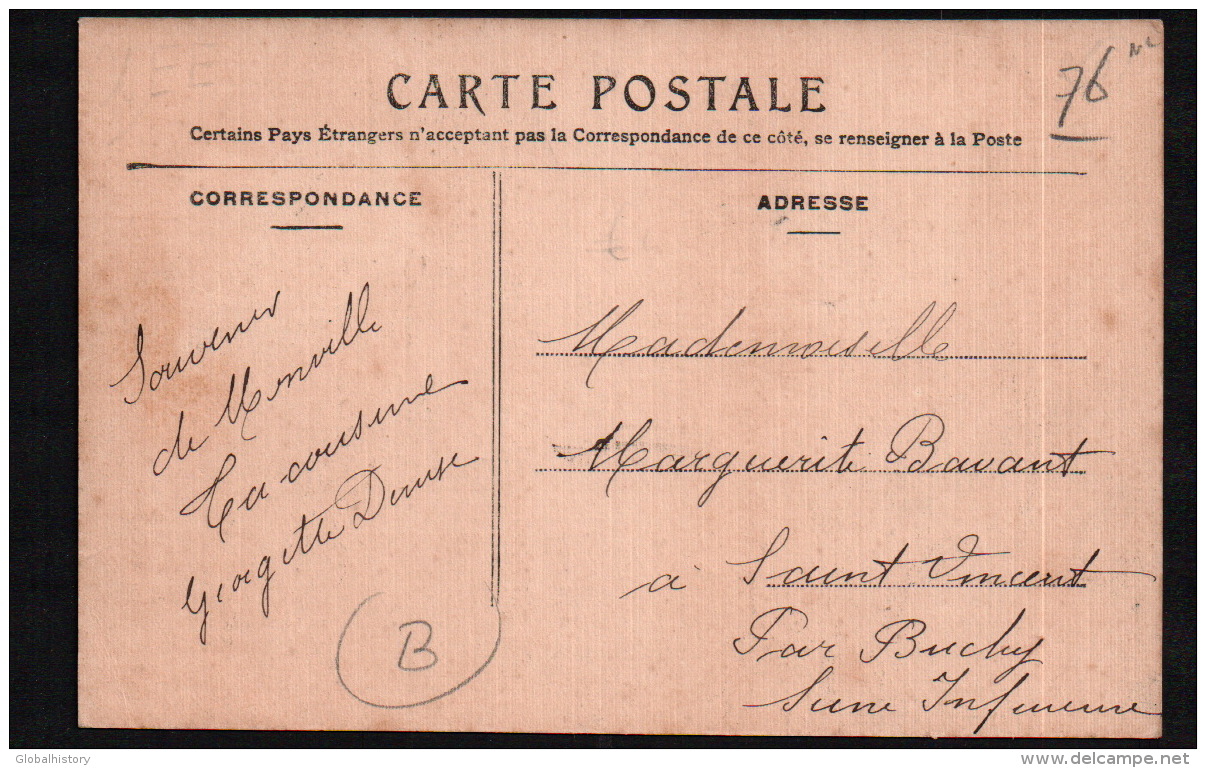 CARTE POSTALE
Certains Pays Étrangers n'acceptant pas la Correspondance de ce côté, se renseigner à la Poste
76
CORRESPONDANCE
Souvenir
de
Ta cousine
Georgette
B
ADRESSE
Mademoiselle
Marguerite Bavant
à Saint Vincent
Par Buchy
Seine Inférieure
Globalhistory
www.delcampe.net